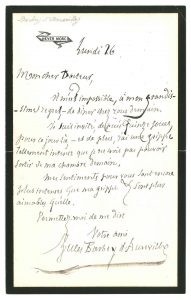 Barbey d'Aurevilly
NEVER MORE
Lundi 26
Mon cher Docteur,
Il m'est impossible, à mon grandis-
sime regret – de dîner chez vous demain.
Je suis invité, depuis quinze jours,
pour ce jour-là – et de plus, j'ai une grippe
tellement intense que je ne sais pas pouvoir
sortir de ma chambre demain.
Mes sentiments pour vous sont encore
plus intenses que ma grippe et sont plus
aimables qu'elle.
Permettez-moi de me dire
Votre ami
Jules Barbey d'Aurevilly